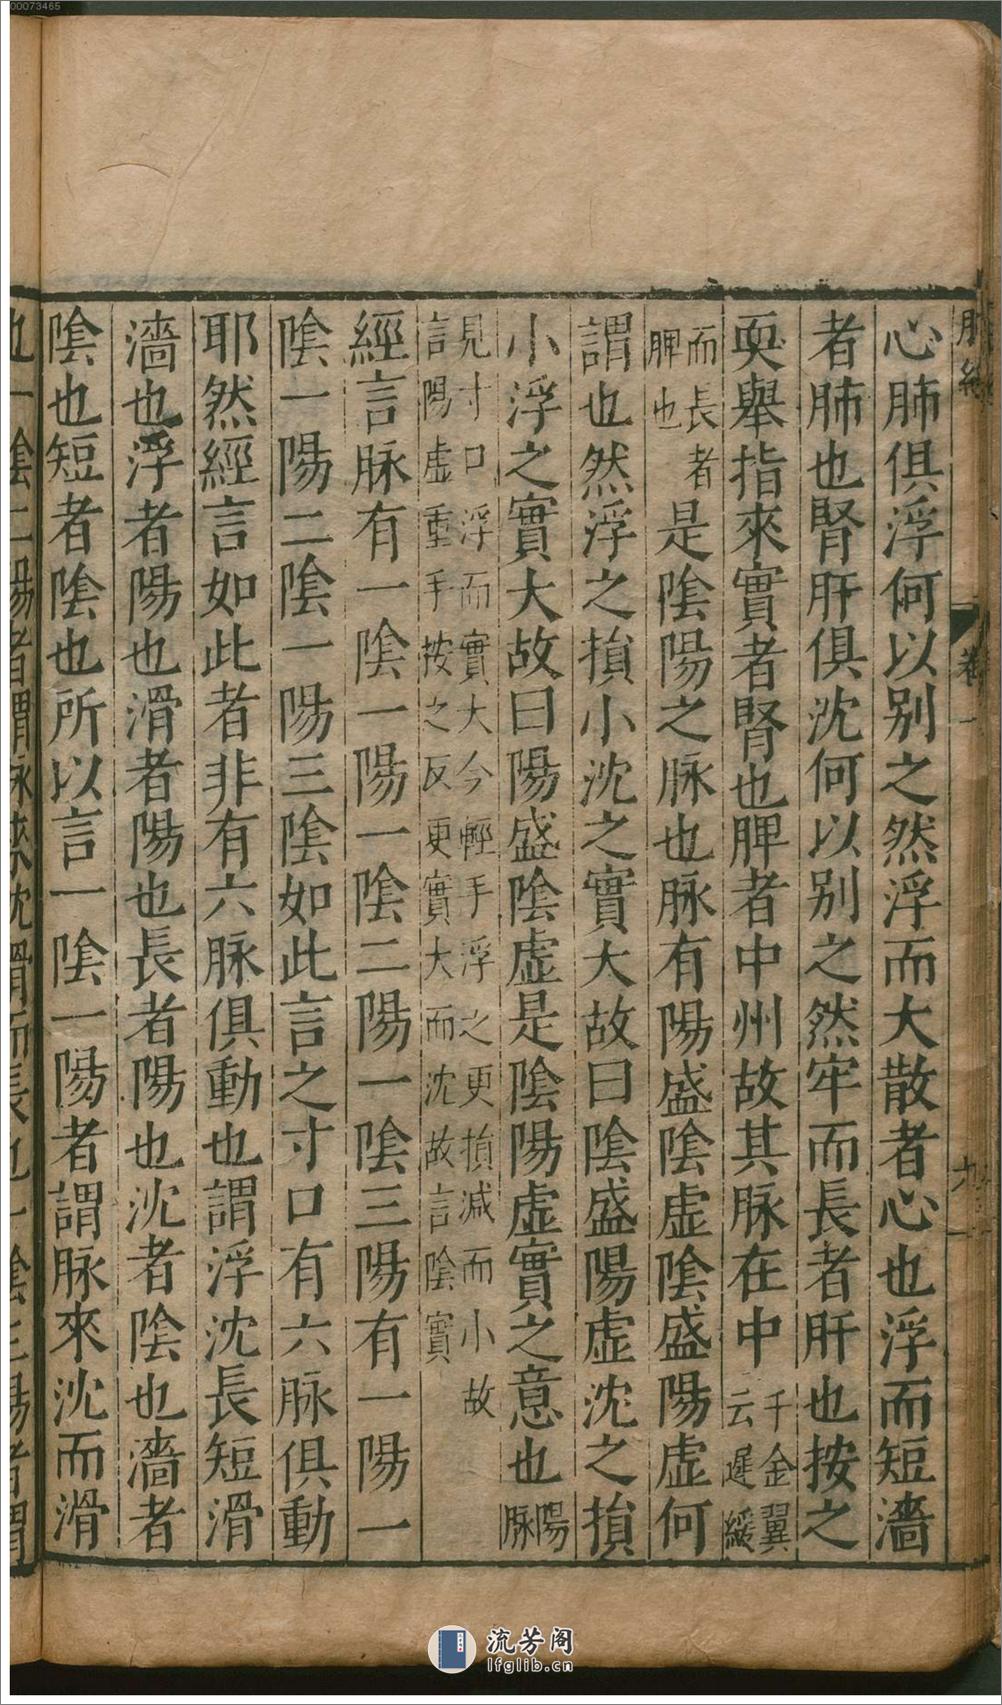 00073465
脉經
卷一
九
心肺俱浮何以别之然浮而大散者心也浮而短濇
者肺也腎肝俱沈何以别之然牢而長者肝也按之
耎舉指來實者腎也脾者中州故其脉在中千金翼云遲緩
而長者脾也是陰陽之脉也脉有陽盛陰虛陰盛陽虛何
謂也然浮之損小沈之實大故曰陰盛陽虛沈之損
小浮之實大故曰陽盛陰虛是陰陽虛實之意也陽脉
見寸口浮而實大今輕手浮之更損減而小故言陽虛重手按之反更實大而沈故言陰實
經言脉有一陰一陽一陰二陽一陰三陽有一陽一
陰一陽二陰一陽三陰如此言之寸口有六脉俱動
耶然經言如此者非有六脉俱動也謂浮沈長短滑
濇也浮者陽也滑者陽也長者陽也沈者陰也濇者
陰也短者陰也所以言一陰一陽者謂脉來沈而滑
也一陰二陽者謂脉來沈滑而長也一陰三陽者謂
流芳阁
lfglib.cn